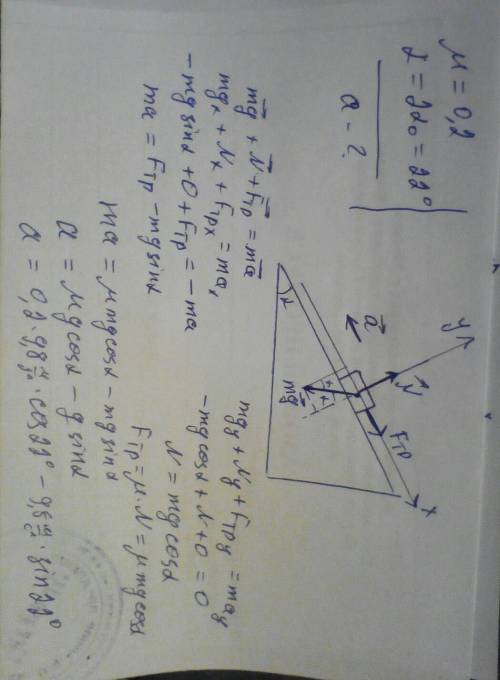 μ = 0,2
α = 2α₀ = 22°
a - ?
y
x
N⃗
Fтр
a⃗
mg⃗
α
α
α
mg⃗ + N⃗ + F⃗тр = ma⃗
mgx + Nx + Fтрx = max
-mg sinα + 0 + Fтр = -ma
ma = Fтр - mg sinα
mgy + Ny + Fтрy = may
-mg cosα + N + 0 = 0
N = mg cosα
Fтр = μ·N = μmg cosα
ma = μmg cosα - mg sinα
a = μg cosα - g sinα
a = 0,2 · 9,8 м/с² · cos22° - 9,8 м/с² · sin22°